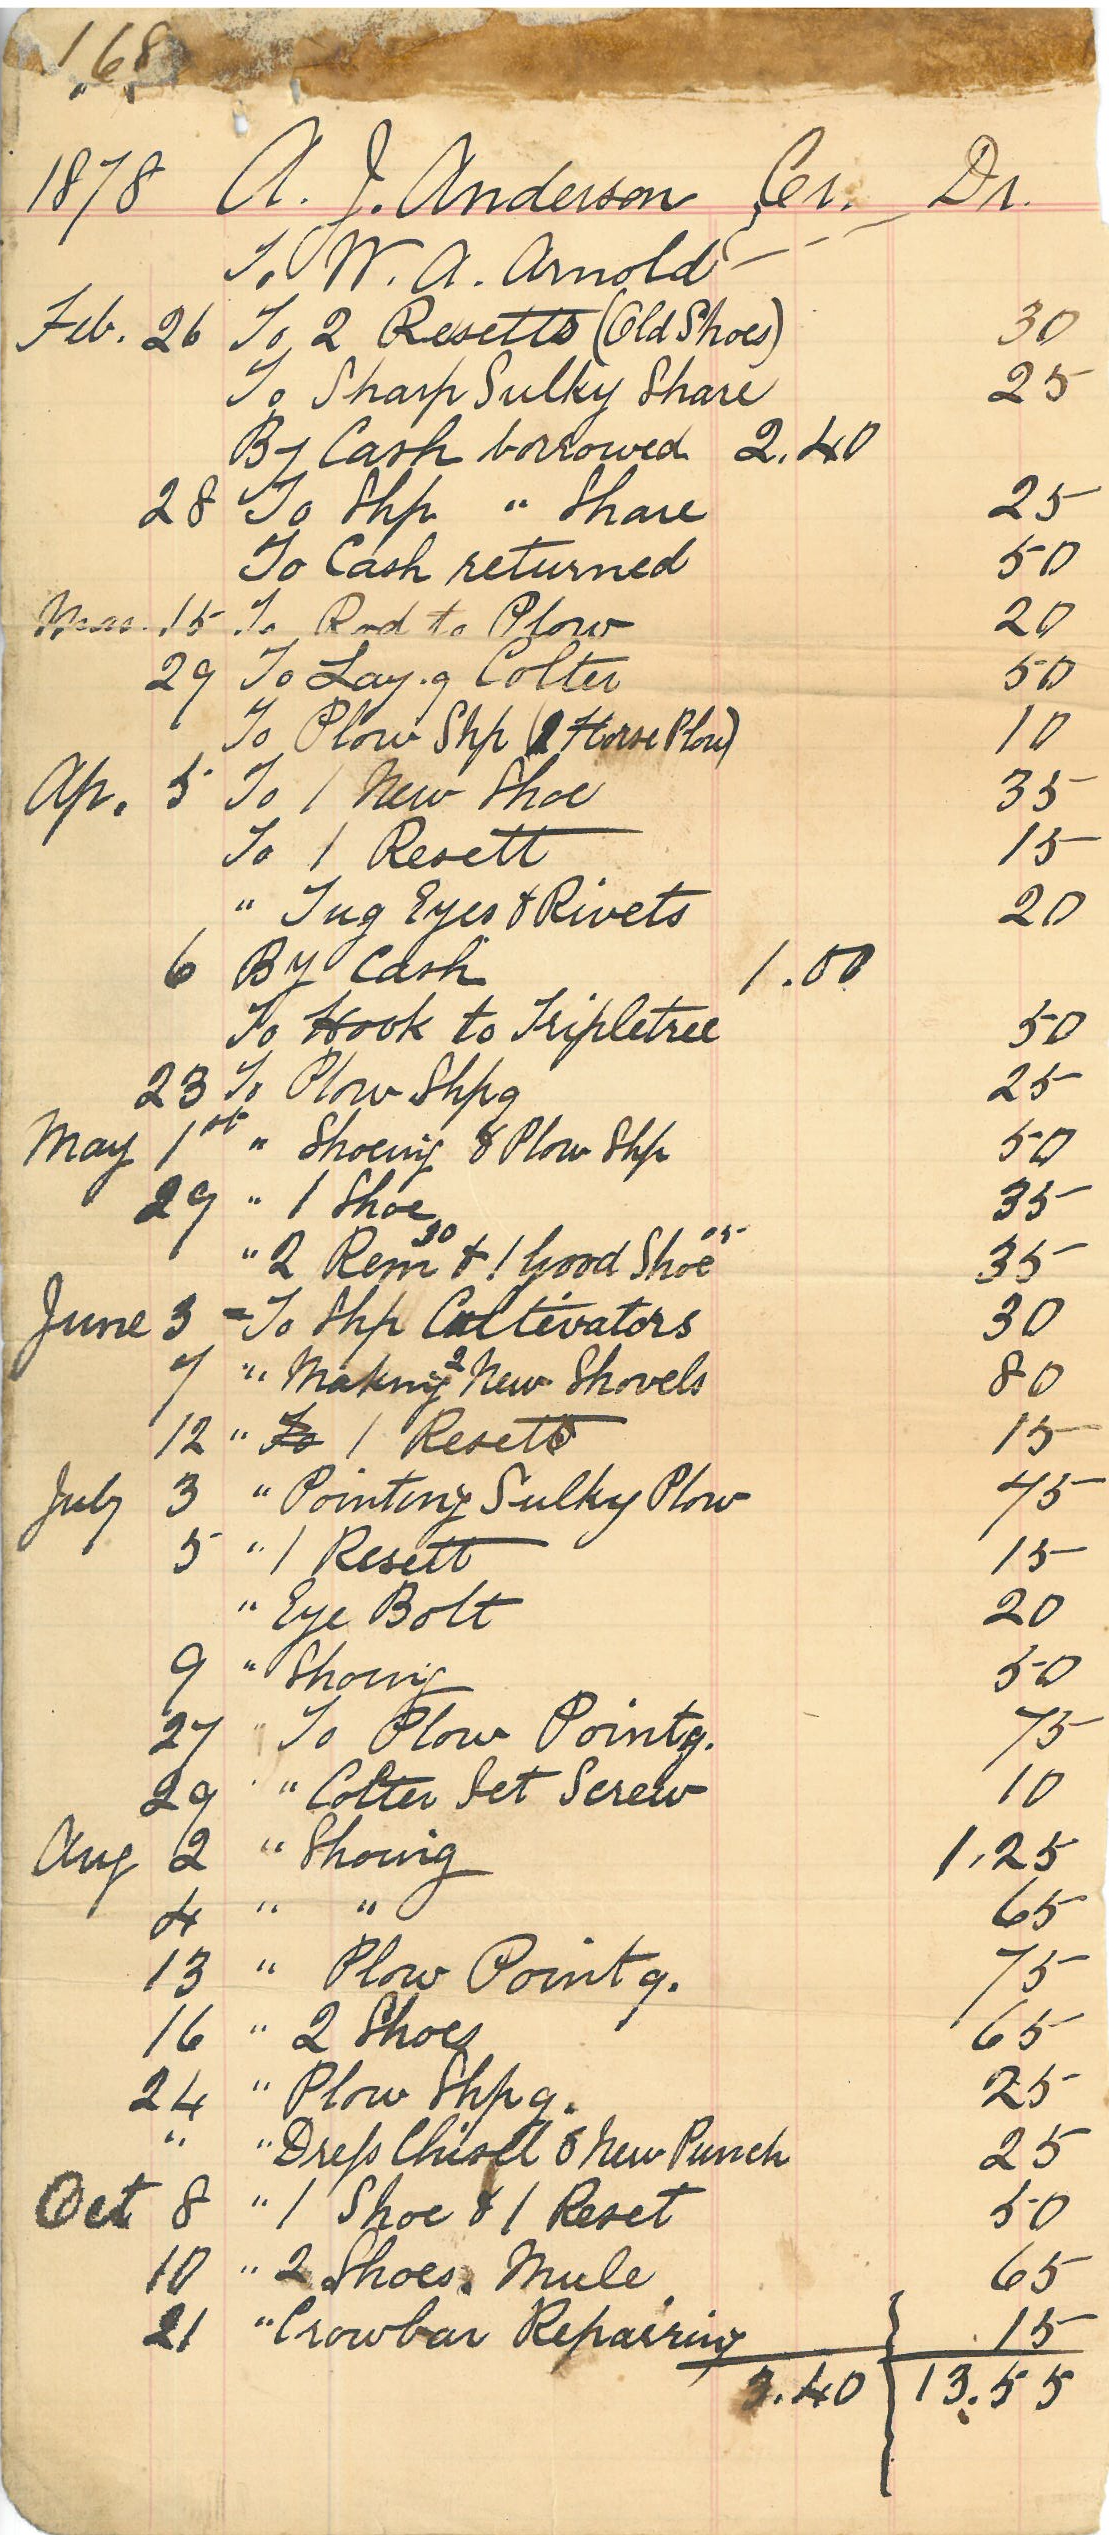 168
1878 A. J. Anderson Cr. Dr.
To W. A. Arnold
Feb. 26 To 2 Resetts (Old Shoes) 30
To Sharp Sulky Share 25
By Cash borrowed 2.40
28 To Shp " Share 25
To Cash returned 50
Mar. 15 To Rod to Plow 20
29 To Lay.g Colter 50
To Plow Shp (2 Horse Plow) 10
Ap. 5 To 1 New Shoe 35
To 1 Resett 15
" Tug Eyes & Rivets 20
6 By Cash 1.00
To Hook to Tripletree 50
23 To Plow Shpg 25
May 1st " Shoeing & Plow Shp 50
29 " 1 Shoe 35
" 2 Rem 30 & 1 Good Shoe 05 35
June 3 - To Shp Cultivators 30
7 " Making 2 New Shovels 80
12 " To 1 Resett 15
July 3 " Pointing Sulky Plow 45
5 " 1 Resett 15
" Eye Bolt 20
9 " Shoing 50
27 " To Plow Pointg. 75
29 " " Colter Set Screw 10
Aug 2 " Shoing 1.25
4 " " 65
13 " Plow Pointg. 75
16 " 2 Shoes 65
24 " Plow Shpg. 25
" " Dress Chisel & New Punch 25
Oct 8 " 1 Shoe & 1 Reset 50
10 " 2 Shoes. Mule 65
21 " Crowbar Repairing 15
3.40 13.55